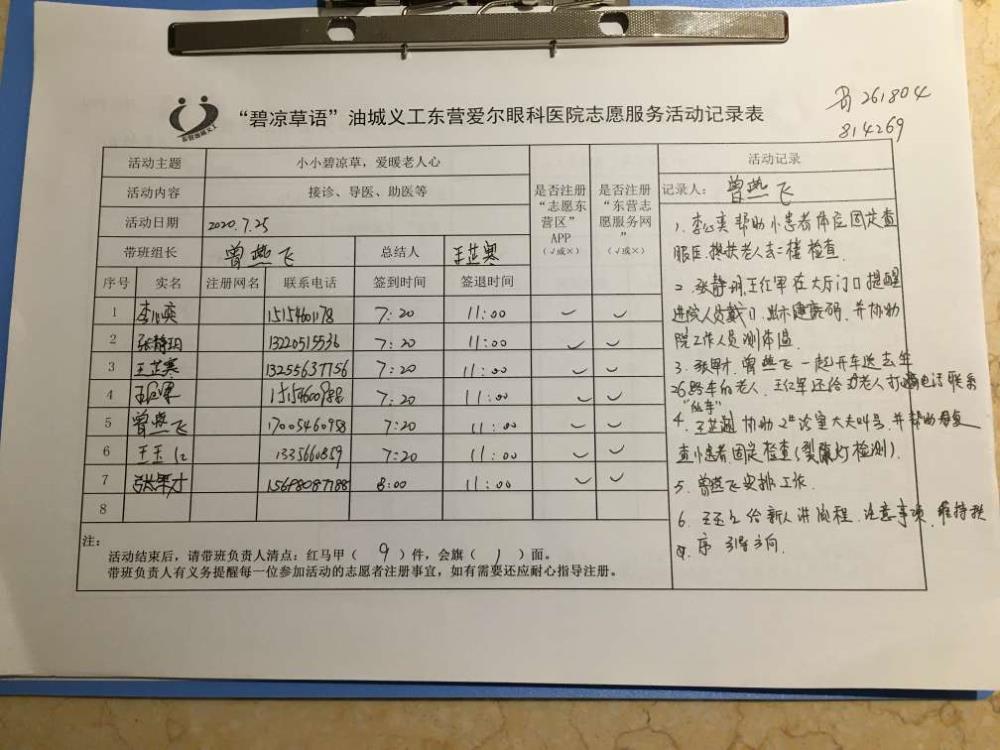 东营油城义工
“碧凉草语”油城义工东营爱尔眼科医院志愿服务活动记录表
261804
814269
活动主题 小小碧凉草，爱暖老人心
活动内容 接诊、导医、助医等
活动日期 2020.7.25
带班组长 曾燕飞 总结人 王芷寒
是否注册“志愿东营区”APP（√或×）
是否注册“东营志愿服务网”（√或×）
序号 实名 注册网名 联系电话 签到时间 签退时间
1 李心奕 15154601178 7:20 11:00
2 张静玥 13220515536 7:20 11:00
3 王芷寒 13255637156 7:20 11:00
4 7:20 11:00
5 曾燕飞 17005460958 7:20 11:00
6 1335660859 7:20 11:00
7 张军才 15698087188 8:00 11:00
8
注：
活动结束后，请带班负责人清点：红马甲（ 9 ）件，会旗（ 1 ）面。
带班负责人有义务提醒每一位参加活动的志愿者注册事宜，如有需要还应耐心指导注册。
活动记录
记录人：曾燕飞
1、李心奕帮助小患者体位固定查
眼底、搀扶老人去二楼检查.
2、张静玥、王红军在大厅门口提醒
进院人员戴口、出示健康码，并协助
院工作人员测体温
3、张军才、曾燕飞一起开车送去坐
26路车的老人，王红军还给老人打电话联系
4、协助2#诊室大夫叫号，并帮助
查小患者固定检查(裂隙灯检测).
5、曾燕飞安排工作.
6、给新人讲流程、注意事项、维持秩
序、引导方向.